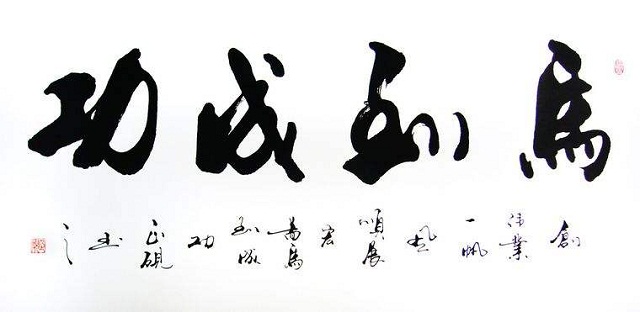 馬到成功
創偉業一帆風順展宏圖馬到成功